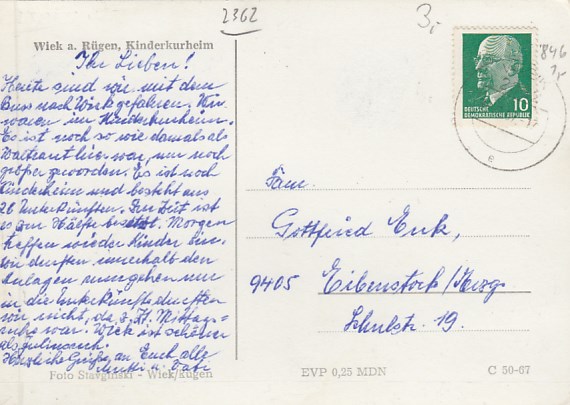 2362
3,-
846
1,-
Wiek a. Rügen, Kinderkurheim
Ihr Lieben!
Heute sind wir mit dem
Buss nach Wiek gefahren. Wir
waren im Kinderkurheim.
Es ist noch so wie damals als
Waltraut hier war, nur noch
größer geworden. Es ist noch
Kinderheim und besteht aus
26 Unterkünften. Zur Zeit ist
es zur Hälfte besetzt. Morgen
treffen wieder Kinder ein.
Wir durften innerhalb der
Anlagen umgehen nur
in die Unterkünfte durften
wir nicht, da z. Zt. Mittags-
ruhe war. Wiek ist schöner
als
Herzliche Grüße an Euch alle
Mutti u. Vati
10
DEUTSCHE
DEMOKRATISCHE REPUBLIK
e
Fam.
Gottfried Enk,
9405 Eibenstock/Erzg
Schulstr. 19.
Foto Stavginski - Wiek/Rügen
EVP 0,25 MDN
C 50-67